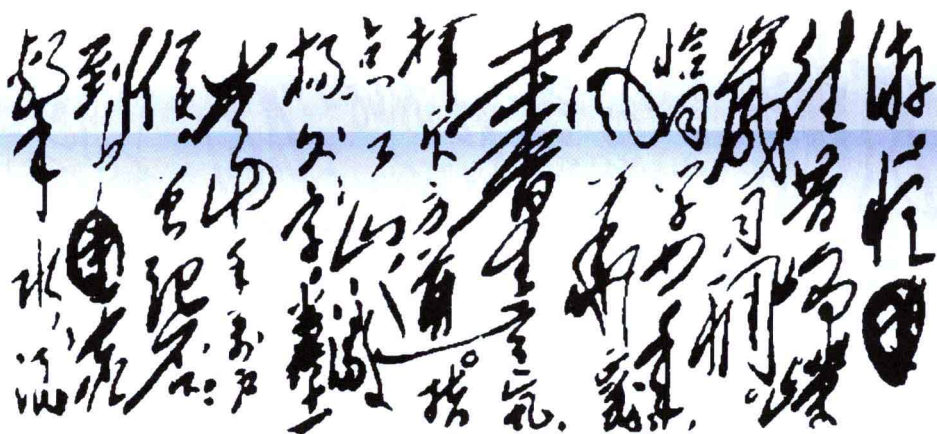 游。忆
往昔峥嵘
歲月稠
恰同学少年
风华正茂
書生意气
挥斥方遒。指
点江山，激
扬文字。粪土
當年万户
侯。曾记否
到中流
擊水，浪